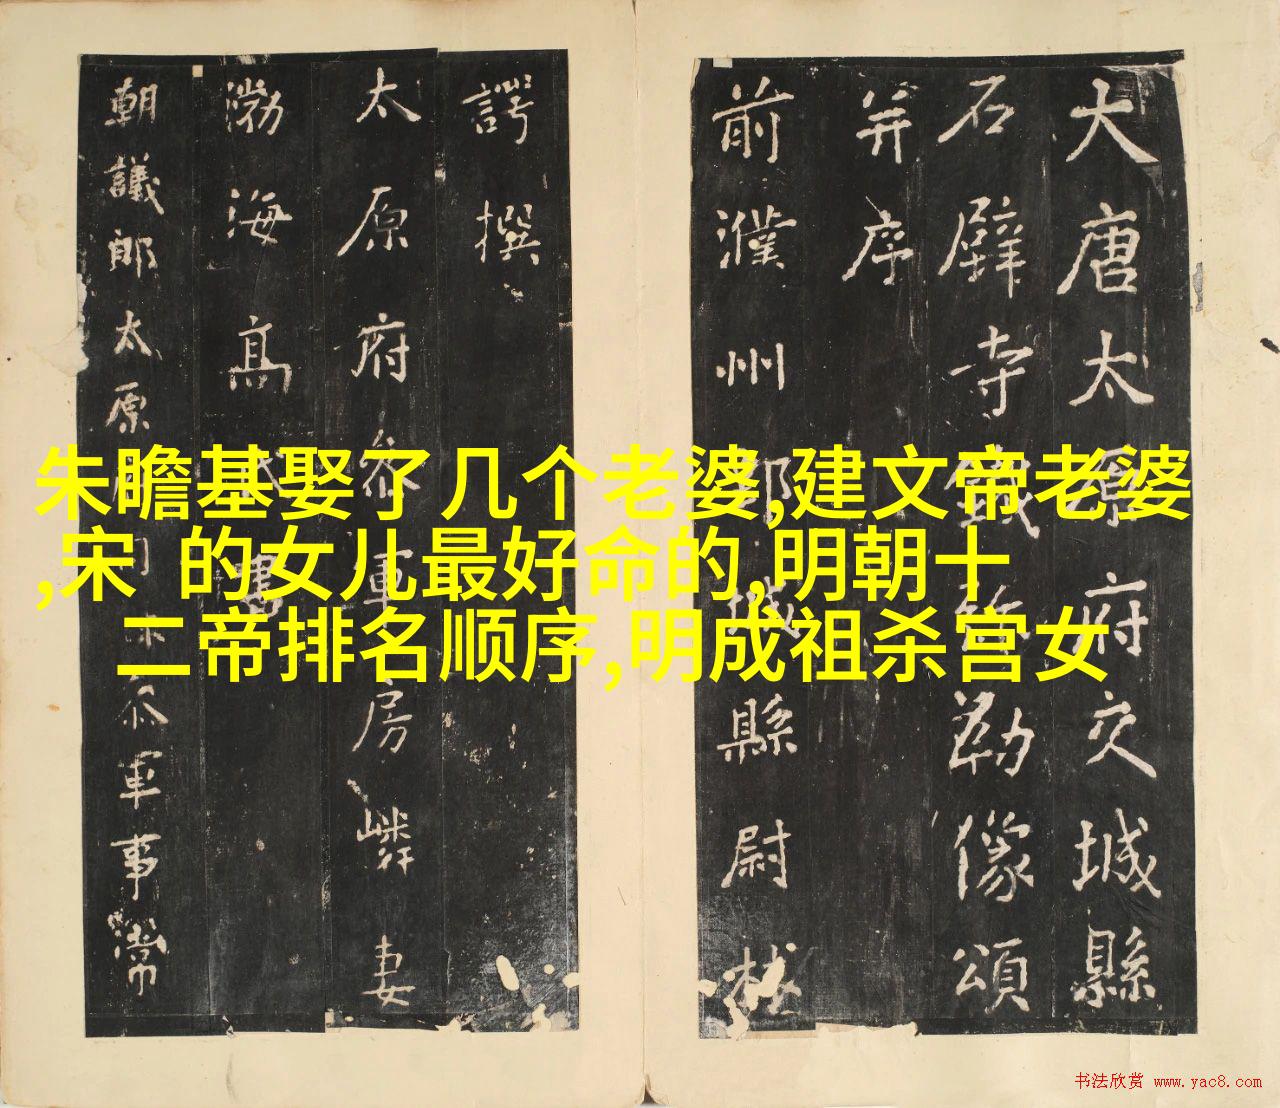 大唐太原府交城縣
石壁寺鐵弥勒像頌
并序
前濮州鄄城縣尉林
諤撰
太原府参軍房嶙妻
渤海高氏書
朝議郎太原
叅軍事常
朱瞻基娶了几个老婆,建文帝老婆
,宋 的女儿最好命的,明朝十
二帝排名顺序,明成祖杀宫女
书法欣赏 www.yac8.com